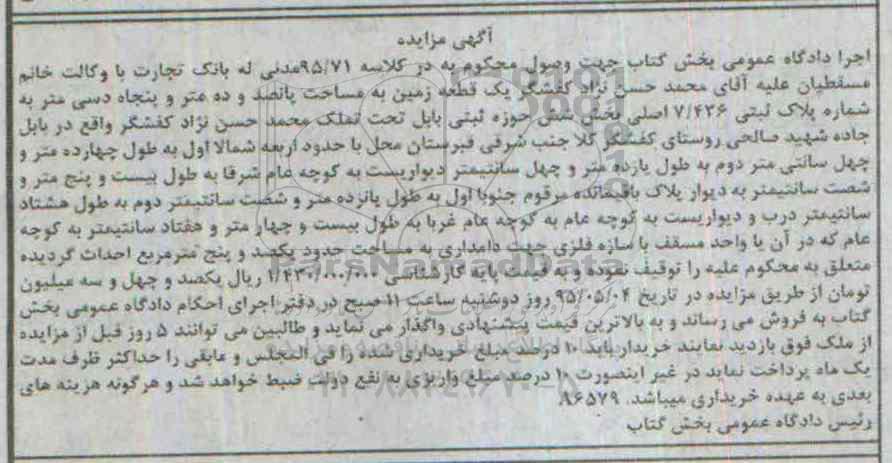 آگهی مزایده
اجرا دادگاه عمومی بخش گتاب جهت وصول محکوم به در کلاسه ۹۵/۷۱مدنی له بانک تجارت با وکالت خانم
مسقطیان علیه آقای محمد حسن نژاد کفشگر یک قطعه زمین به مساحت پانصد و ده متر و پنجاه دسی متر به
شماره پلاک ثبتی ۷/۴۳۶ اصلی بخش شش حوزه ثبتی بابل تحت تملک محمد حسن نژاد کفشگر واقع در بابل
جاده شهید صالحی روستای کفشگر کلا جنب شرقی قبرستان محل با حدود اربعه شمالا اول به طول چهارده متر و
چهل سانتی متر دوم به طول یازده متر و چهل سانتیمتر دیواریست به کوچه عام شرقا به طول بیست و پنج متر و
شصت سانتیمتر به دیوار پلاک باقیمانده مرقوم جنوبا اول به طول پانزده متر و شصت سانتیمتر دوم به طول هشتاد
سانتیمتر درب و دیواریست به کوچه عام به کوچه عام غربا به طول بیست و چهار متر و هفتاد سانتیمتر به کوچه
عام که در آن یا واحد مسقف با سازه فلزی جهت دامداری به مساحت حدود یکصد و پنج مترمربع احداث گردیده
متعلق به محکوم علیه را توقیف نموده و به قیمت پایه کارشناسی ۱/۴۳۰/۰۰۰/۰۰۰ ریال یکصد و چهل و سه میلیون
تومان از طریق مزایده در تاریخ ۹۵/۰۵/۰۴ روز دوشنبه ساعت ۱۱ صبح در دفتر اجرای احکام دادگاه عمومی بخش
گتاب به فروش می رساند و به بالاترین قیمت پیشنهادی واگذار می نماید و طالبین می توانند ۵ روز قبل از مزایده
از ملک فوق بازدید نمایند خریدار باید ۱۰ درصد مبلغ خریداری شده را فی المجلس و مابقی را حداکثر ظرف مدت
یک ماه پرداخت نماید در غیر اینصورت ۱۰ درصد مبلغ واریزی به نفع دولت ضبط خواهد شد و هرگونه هزینه های
بعدی به عهده خریداری میباشد. ۹۶۵۷۹
رئیس دادگاه عمومی بخش گتاب
ParsNamadData